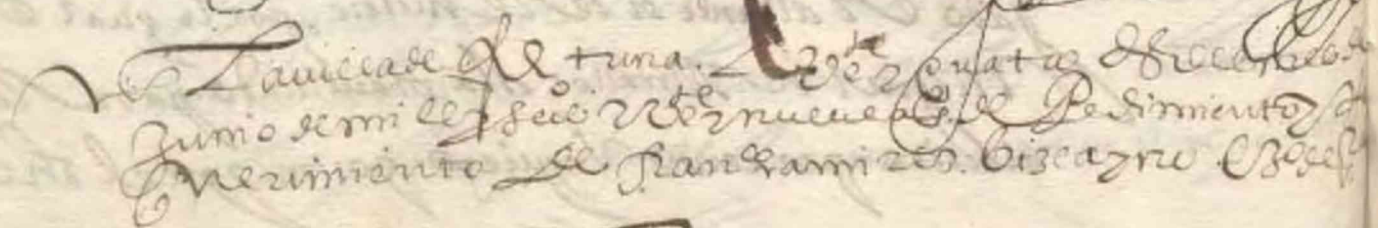 En La villa de fortuna. A Veynte y quatro dias del mes de
Junio de mill y seis° y Veynte y nueve años de Pedimiento y Re
querimiento de fran^co Ramires. bizcayno